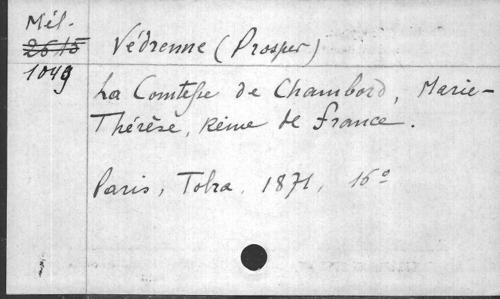 Mél.
2615
1049
Védrenne (Prosper)
La Comtesse de Chambord, Marie-
Thérèse, Reine de France.
Paris, Tolra, 1871, 16°